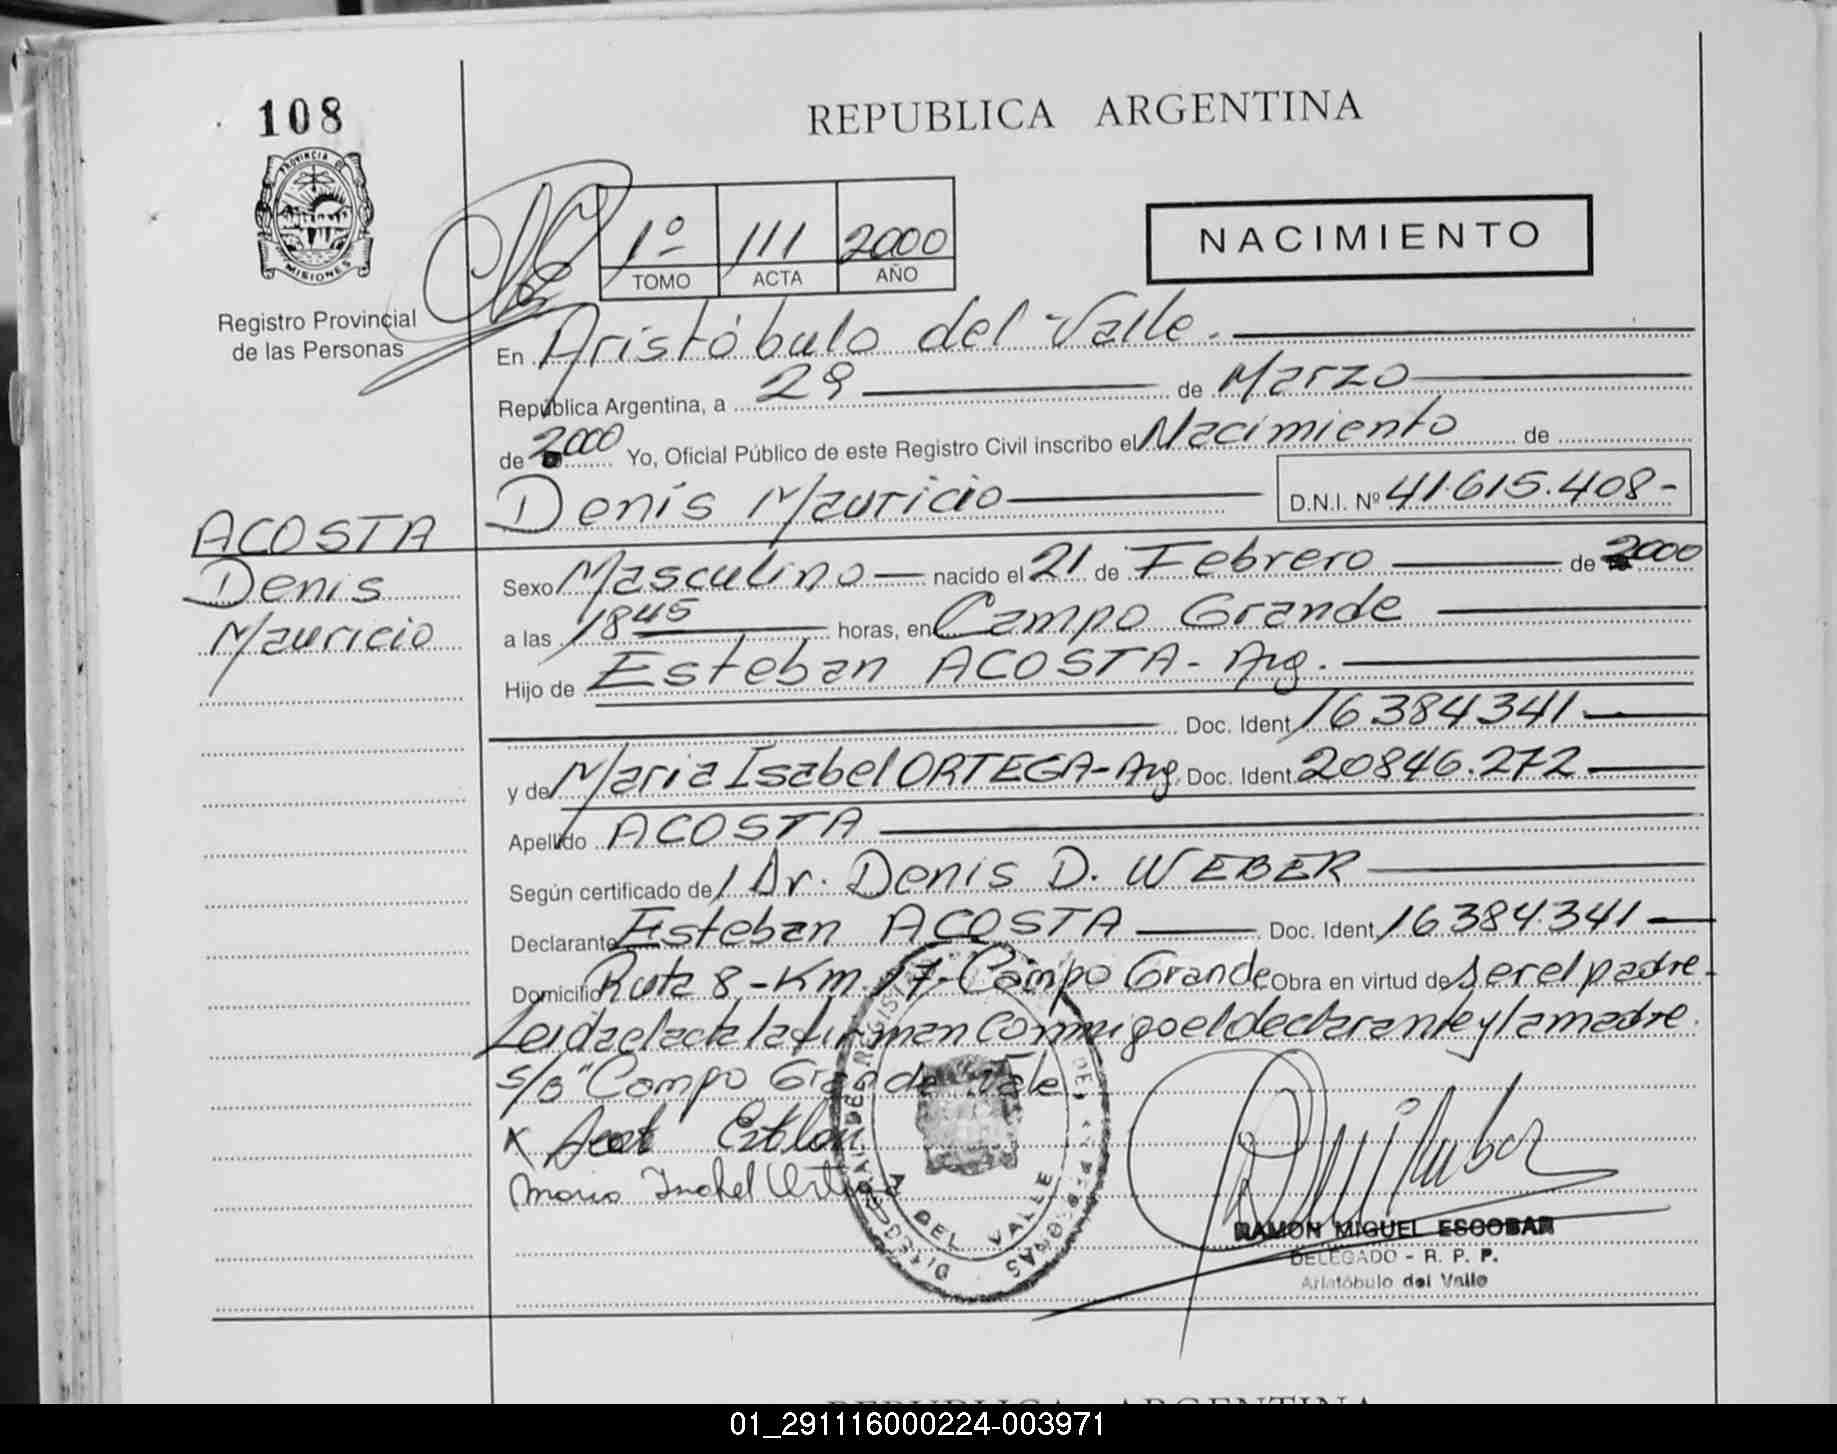 108
REPUBLICA ARGENTINA
PROVINCIA DE MISIONES
Registro Provincial
de las Personas
1º 111 2000
TOMO ACTA AÑO
NACIMIENTO
En Aristóbulo del Valle.
República Argentina, a 29 de Marzo
de 2000 Yo, Oficial Público de este Registro Civil inscribo el Nacimiento de
Denis Mauricio D.N.I. Nº 41.615.408-
ACOSTA
Denis
Mauricio
Sexo Masculino nacido el 21 de Febrero de 2000
a las 1845 horas, en Campo Grande
Hijo de Esteban ACOSTA - Arg.
Doc. Ident 16384341
y de Maria Isabel ORTEGA - Arg. Doc. Ident. 20846.272
Apellido ACOSTA
Según certificado de Dr. Denis D. WEBER
Declarante Esteban ACOSTA Doc. Ident. 16384.341
Domicilio Ruta 8 - Km. 17 - Campo Grande Obra en virtud de ser el padre.
Leida el acta la firman conmigo el declarante y la madre.
S/B "Campo Grande" Vale
DEL VALLE
RAMON MIGUEL ESCOBAR
DELEGADO - R. P. P.
Aristóbulo del Valle
REPUBLICA ARGENTINA
01_291116000224-003971